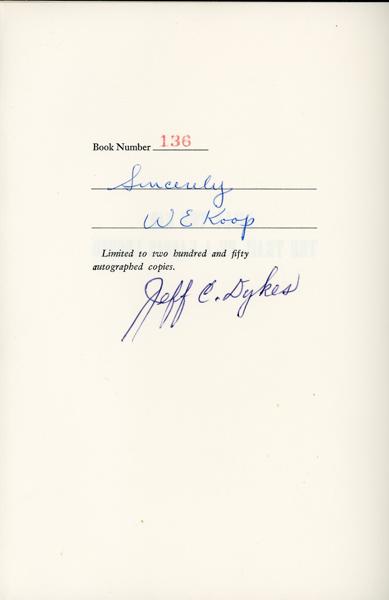 Book Number 136
Sincerely
W E Koop
Limited to two hundred and fifty
autographed copies.
Jeff C. Dykes